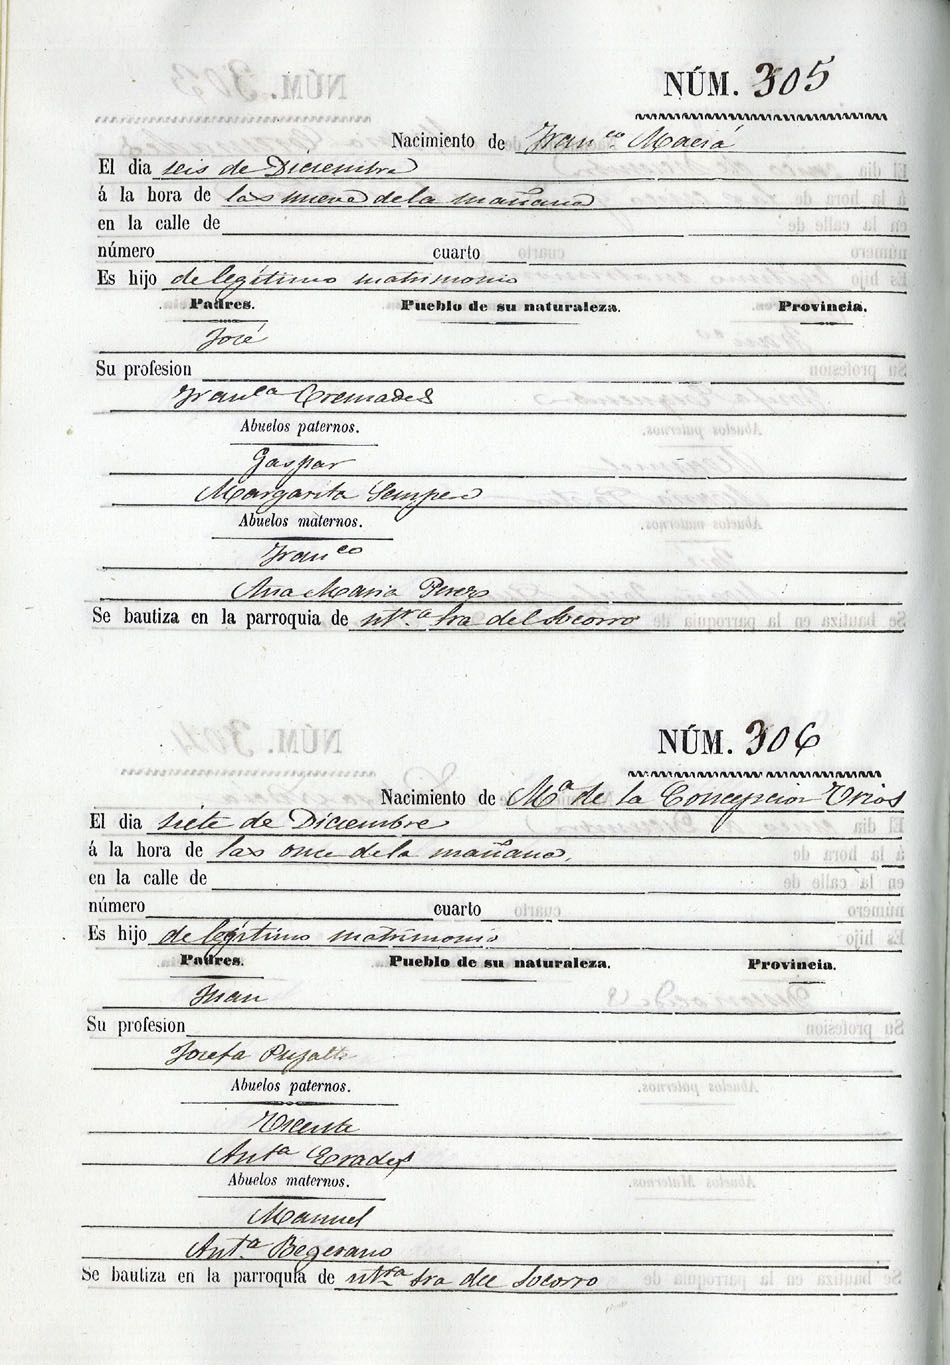 NÚM. 305
Nacimiento de Fran.co Maciá
El dia seis de Diciembre
á la hora de las nueve de la mañana
en la calle de
número cuarto
Es hijo de legitimo matrimonio
Padres. Pueblo de su naturaleza. Provincia.
José
Su profesion
Fran.ca Cremades
Abuelos paternos.
Gaspar
Margarita Sempere
Abuelos maternos.
Fran.co
Ana Maria Perez
Se bautiza en la parroquia de ntr.a Sra del Socorro
NÚM. 306
Nacimiento de M.a de la Concepcion Urios
El dia siete de Diciembre
á la hora de las once de la mañana.
en la calle de
número cuarto
Es hijo de legitimo matrimonio
Padres. Pueblo de su naturaleza. Provincia.
Juan
Su profesion
Josefa Pujalte
Abuelos paternos.
Vicente
Ant.a Erades
Abuelos maternos.
Manuel
Ant.a
Se bautiza en la parroquia de ntra Sra del Socorro